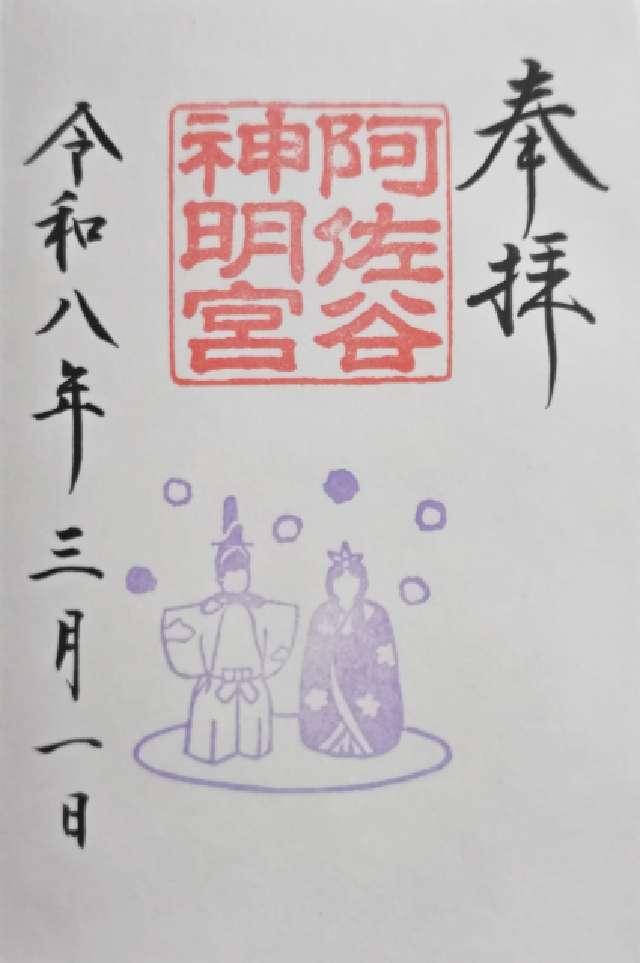 奉拝
阿佐谷
神明宮
令和八年三月一日